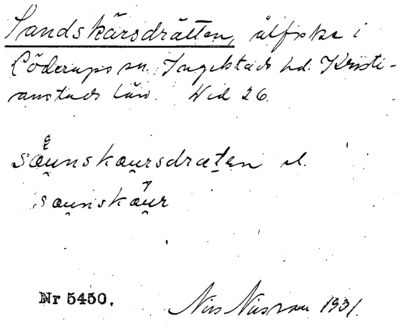 Sandskärsdrätten, ålfiske i
Löderups sn. Ingelstads hd. Kristi-
anstads län. Wid 26.
sau̯nskau̯rsdræten el.
sau̯nskau̯r
Nr 5450.
Nils Nilsson 1931.